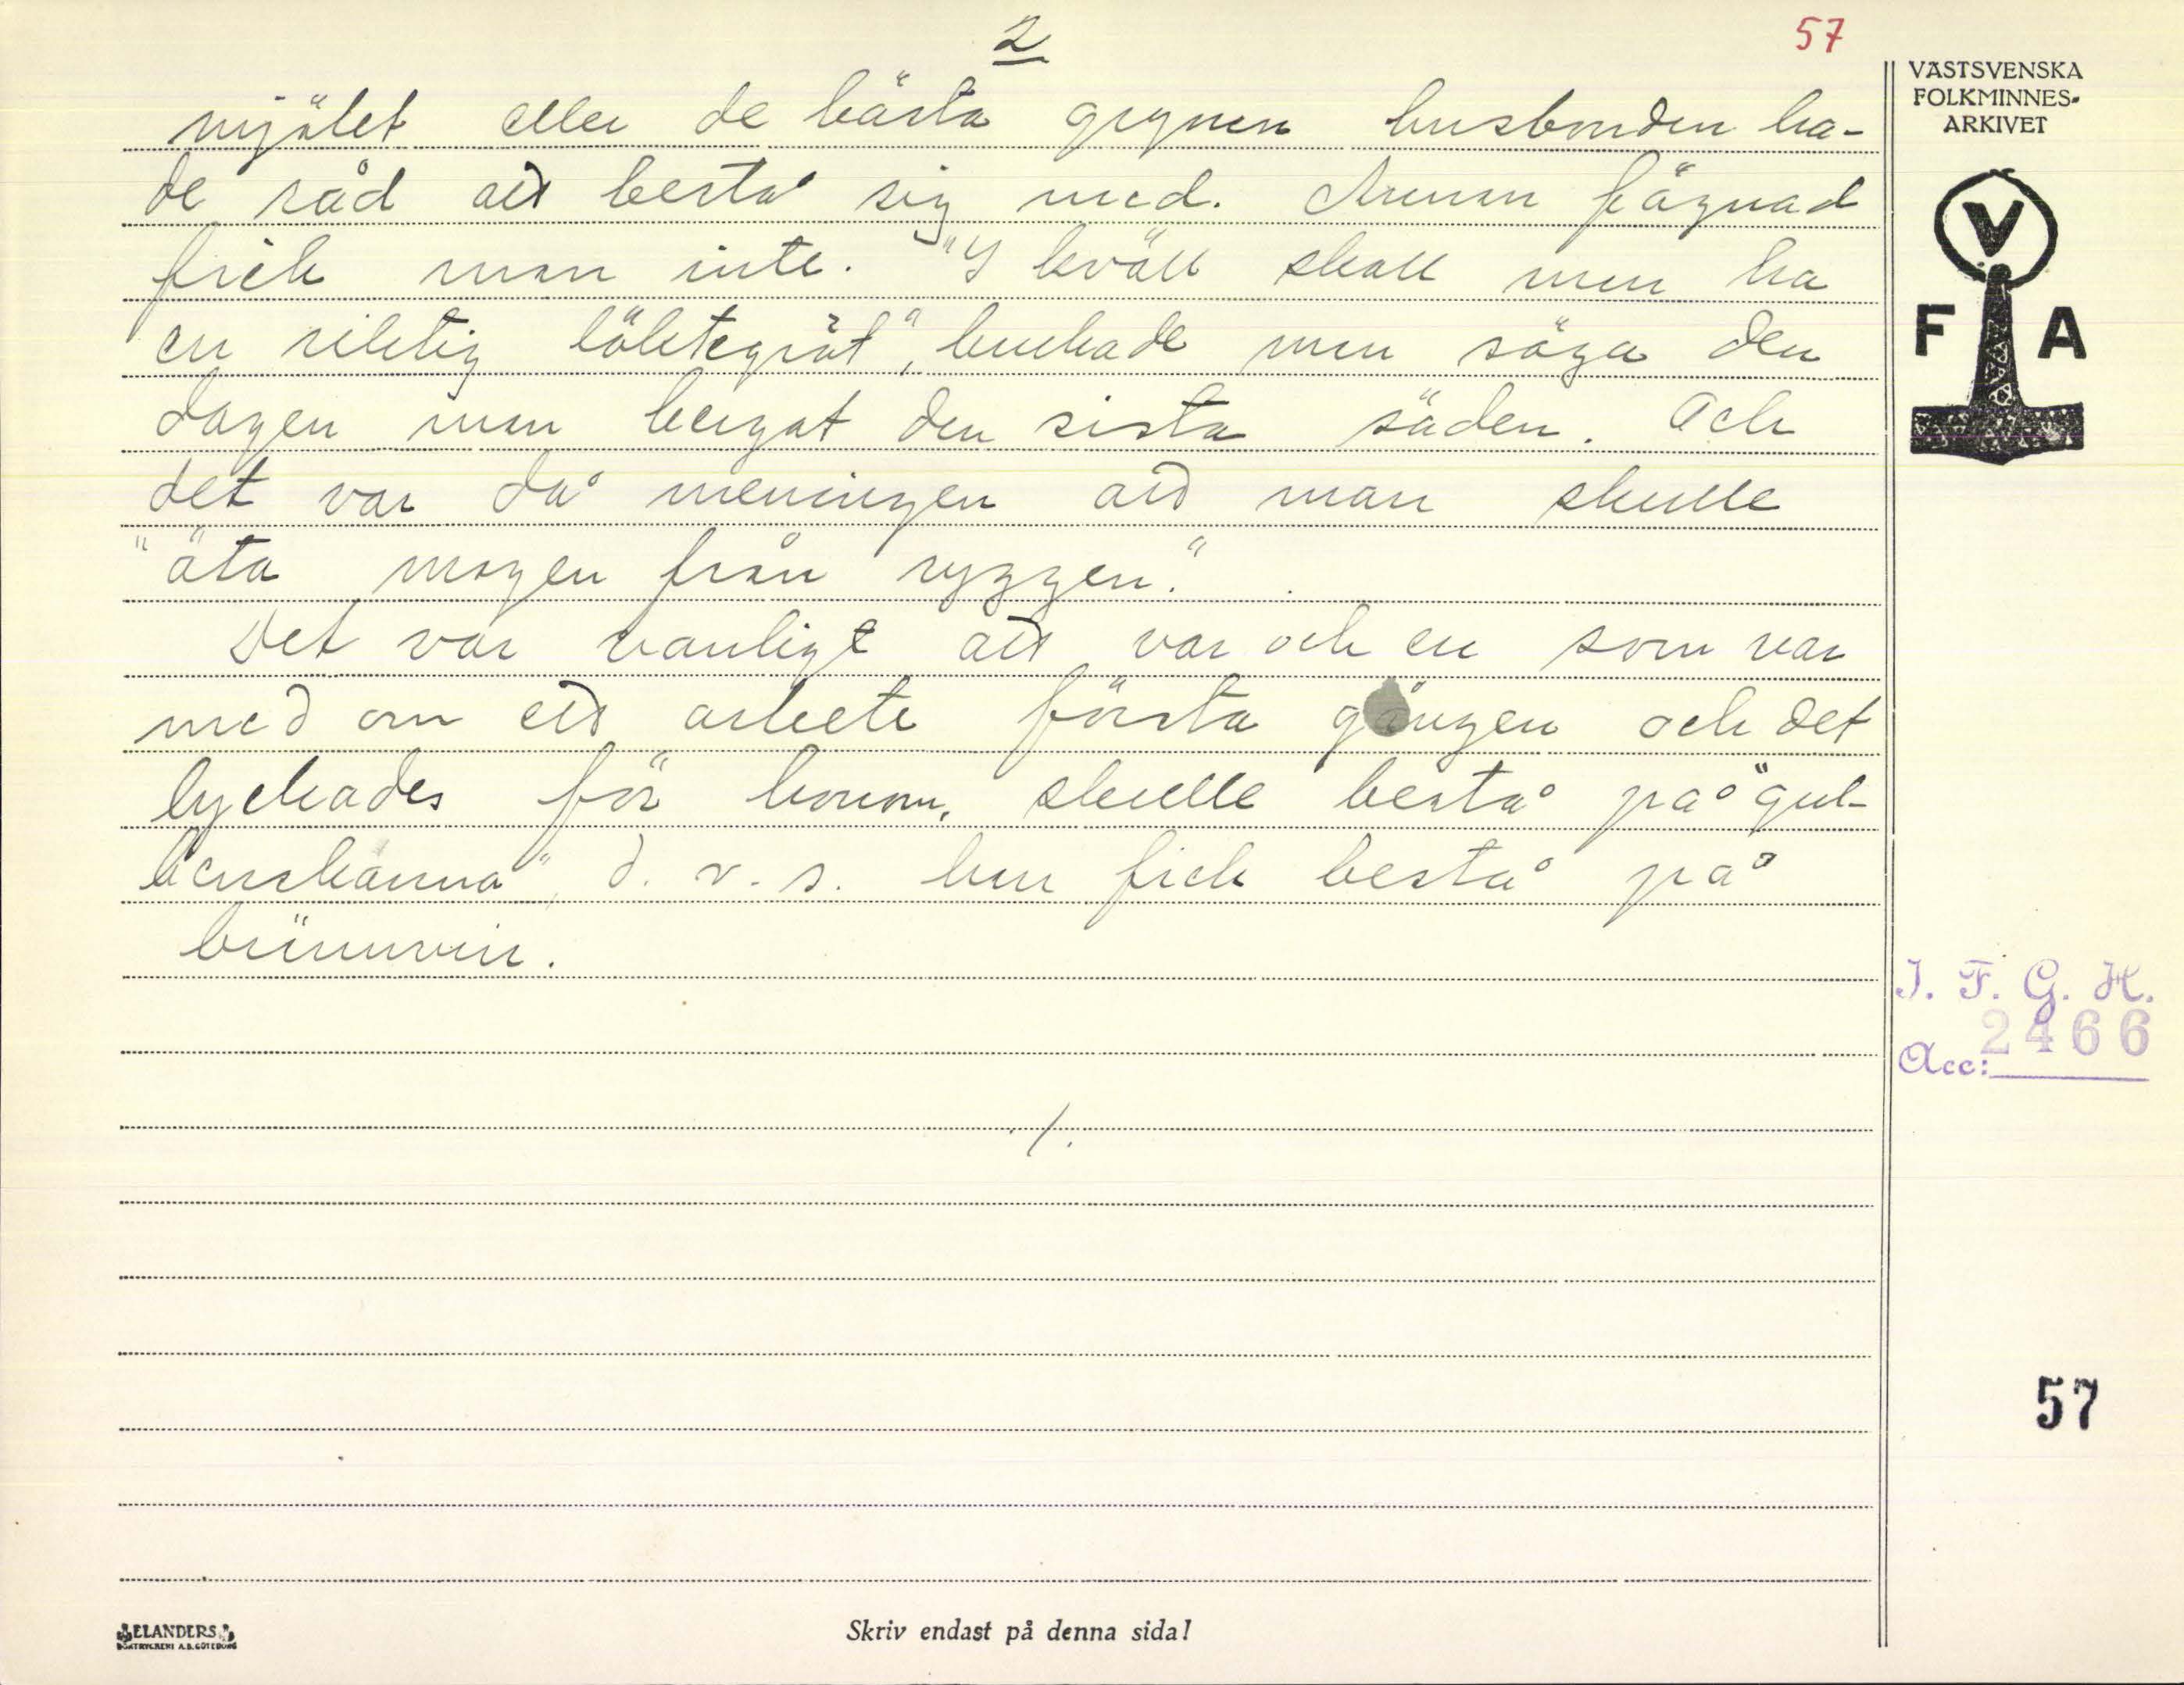 2
57
mjölet eller de bästa grynen husbonden ha-
de råd att bestå sig med. Annan fägnad
fick man inte. "I kväll skall man ha
en riktig löktegröt", brukade man säga den
dagen man bergat den sista säden. Och
det var då meningen att man skulle
"äta magen från ryggen."
Det var vanligt att var och en som var
med om ett arbete första gången och det
lyckades för honom, skulle bestå på "gul-
benskanna", d. v. s. han fick bestå på
brännvin.
./.
VÄSTSVENSKA
FOLKMINNES-
ARKIVET
V
F A
I. F. G. H.
2466
Acc:
57
ELANDERS
BOKTRYCKERI A.B. GÖTEBORG
Skriv endast på denna sida!